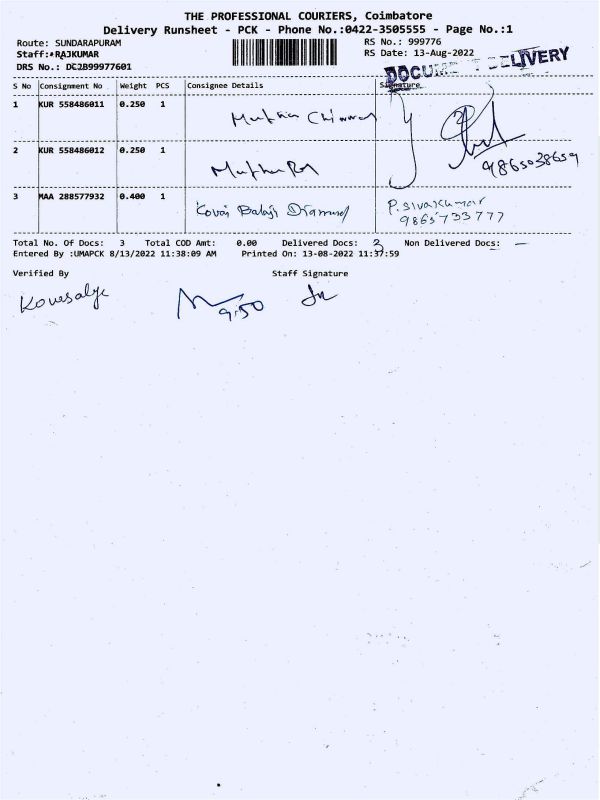 THE PROFESSIONAL COURIERS, Coimbatore
Delivery Runsheet - PCK - Phone No.:0422-3505555 - Page No.:1
Route: SUNDARAPURAM RS No.: 999776
Staff:*RAJKUMAR RS Date: 13-Aug-2022
DRS No.: DC2B99977601
DOCUMENT DELIVERY
S No Consignment No Weight PCS Consignee Details Signature
1 KUR 558486011 0.250 1
2 KUR 558486012 0.250 1
9865038659
3 MAA 288577932 0.400 1 Kovai Balaji Diamond P.Sivakumar
9865733777
Total No. Of Docs: 3 Total COD Amt: 0.00 Delivered Docs: 3 Non Delivered Docs: —
Entered By :UMAPCK 8/13/2022 11:38:09 AM Printed On: 13-08-2022 11:37:59
Verified By Staff Signature
9:50